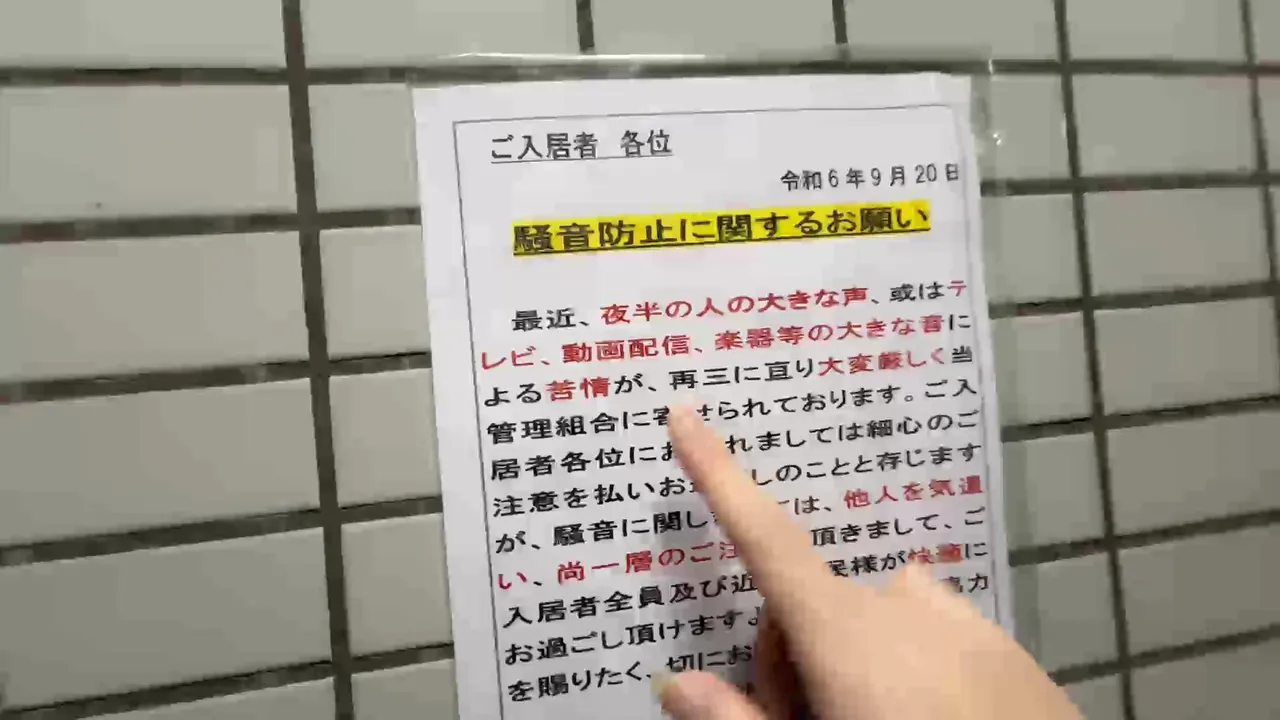 ご入居者 各位
令和6年9月20日
騒音防止に関するお願い
最近、夜半の人の大きな声、或はテ
レビ、動画配信、楽器等の大きな音に
よる苦情が、再三に亘り大変厳しく当
管理組合に寄せられております。ご入
居者各位にお れましては細心のご
注意を払いお しのことと存じます
が、騒音に関し ては、他人を気遣
い、尚一層のご注 頂きまして、ご
入居者全員及び近 民様が快適に
お過ごし頂けますよ 力
を賜りたく、切にお